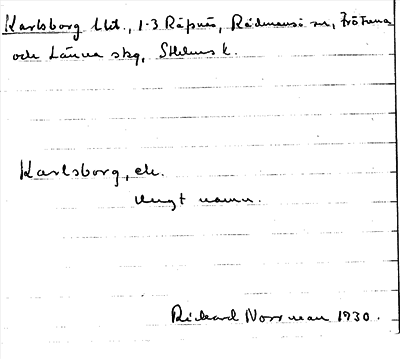 Karlsborg lht., 1-3 Räpnäs, Rådmansö sn, Frötuna
och Länna skg, Sthlms l.
Karlsborg, ek.
Ungt namn.
Rickard Norrman 1930.